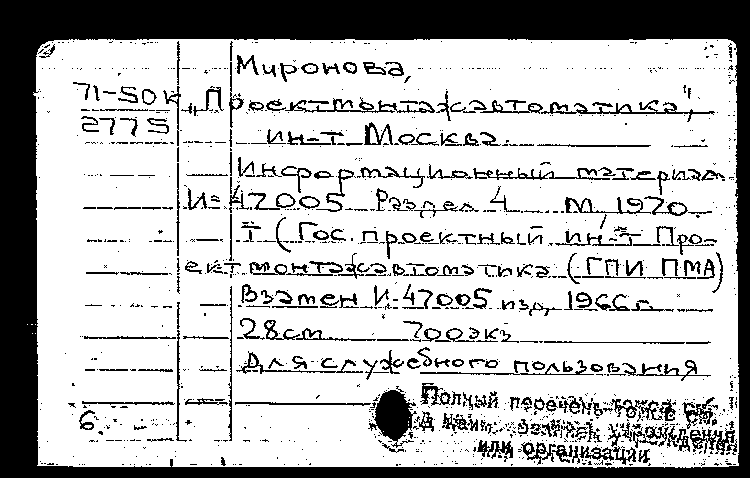 Миронова,
71-50к „Проектмонтажавтоматика",
2775 ин-т Москва.
Информационный материал
И-47005 Раздел 4 М, 1970.
т (Гос. проектный ин-т Про-
ектмонтажавтоматика (ГПИ ПМА)
Взамен И-47005 изд, 1966 г.
28см 700экз
Для служебного пользования
Полный перечень томов см.
6.
учреждения
или организации